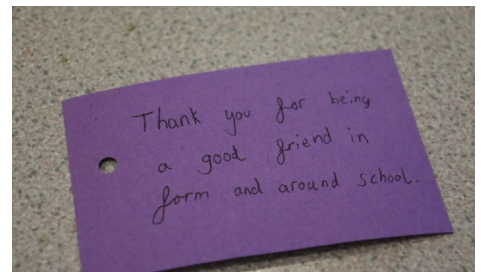 Thank you for being
a good friend in
form and around school.